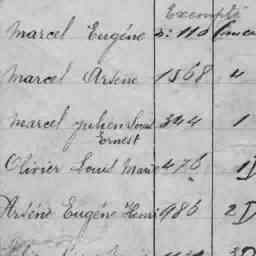 Exempté
Marcel Eugéne n: 110
Marcel Arséne 1568 4
Marcel Julien Louis 344 1
Ernest
Olivier Louis Marie 476 1 D
Arséne Eugéne Henri 986 2 D